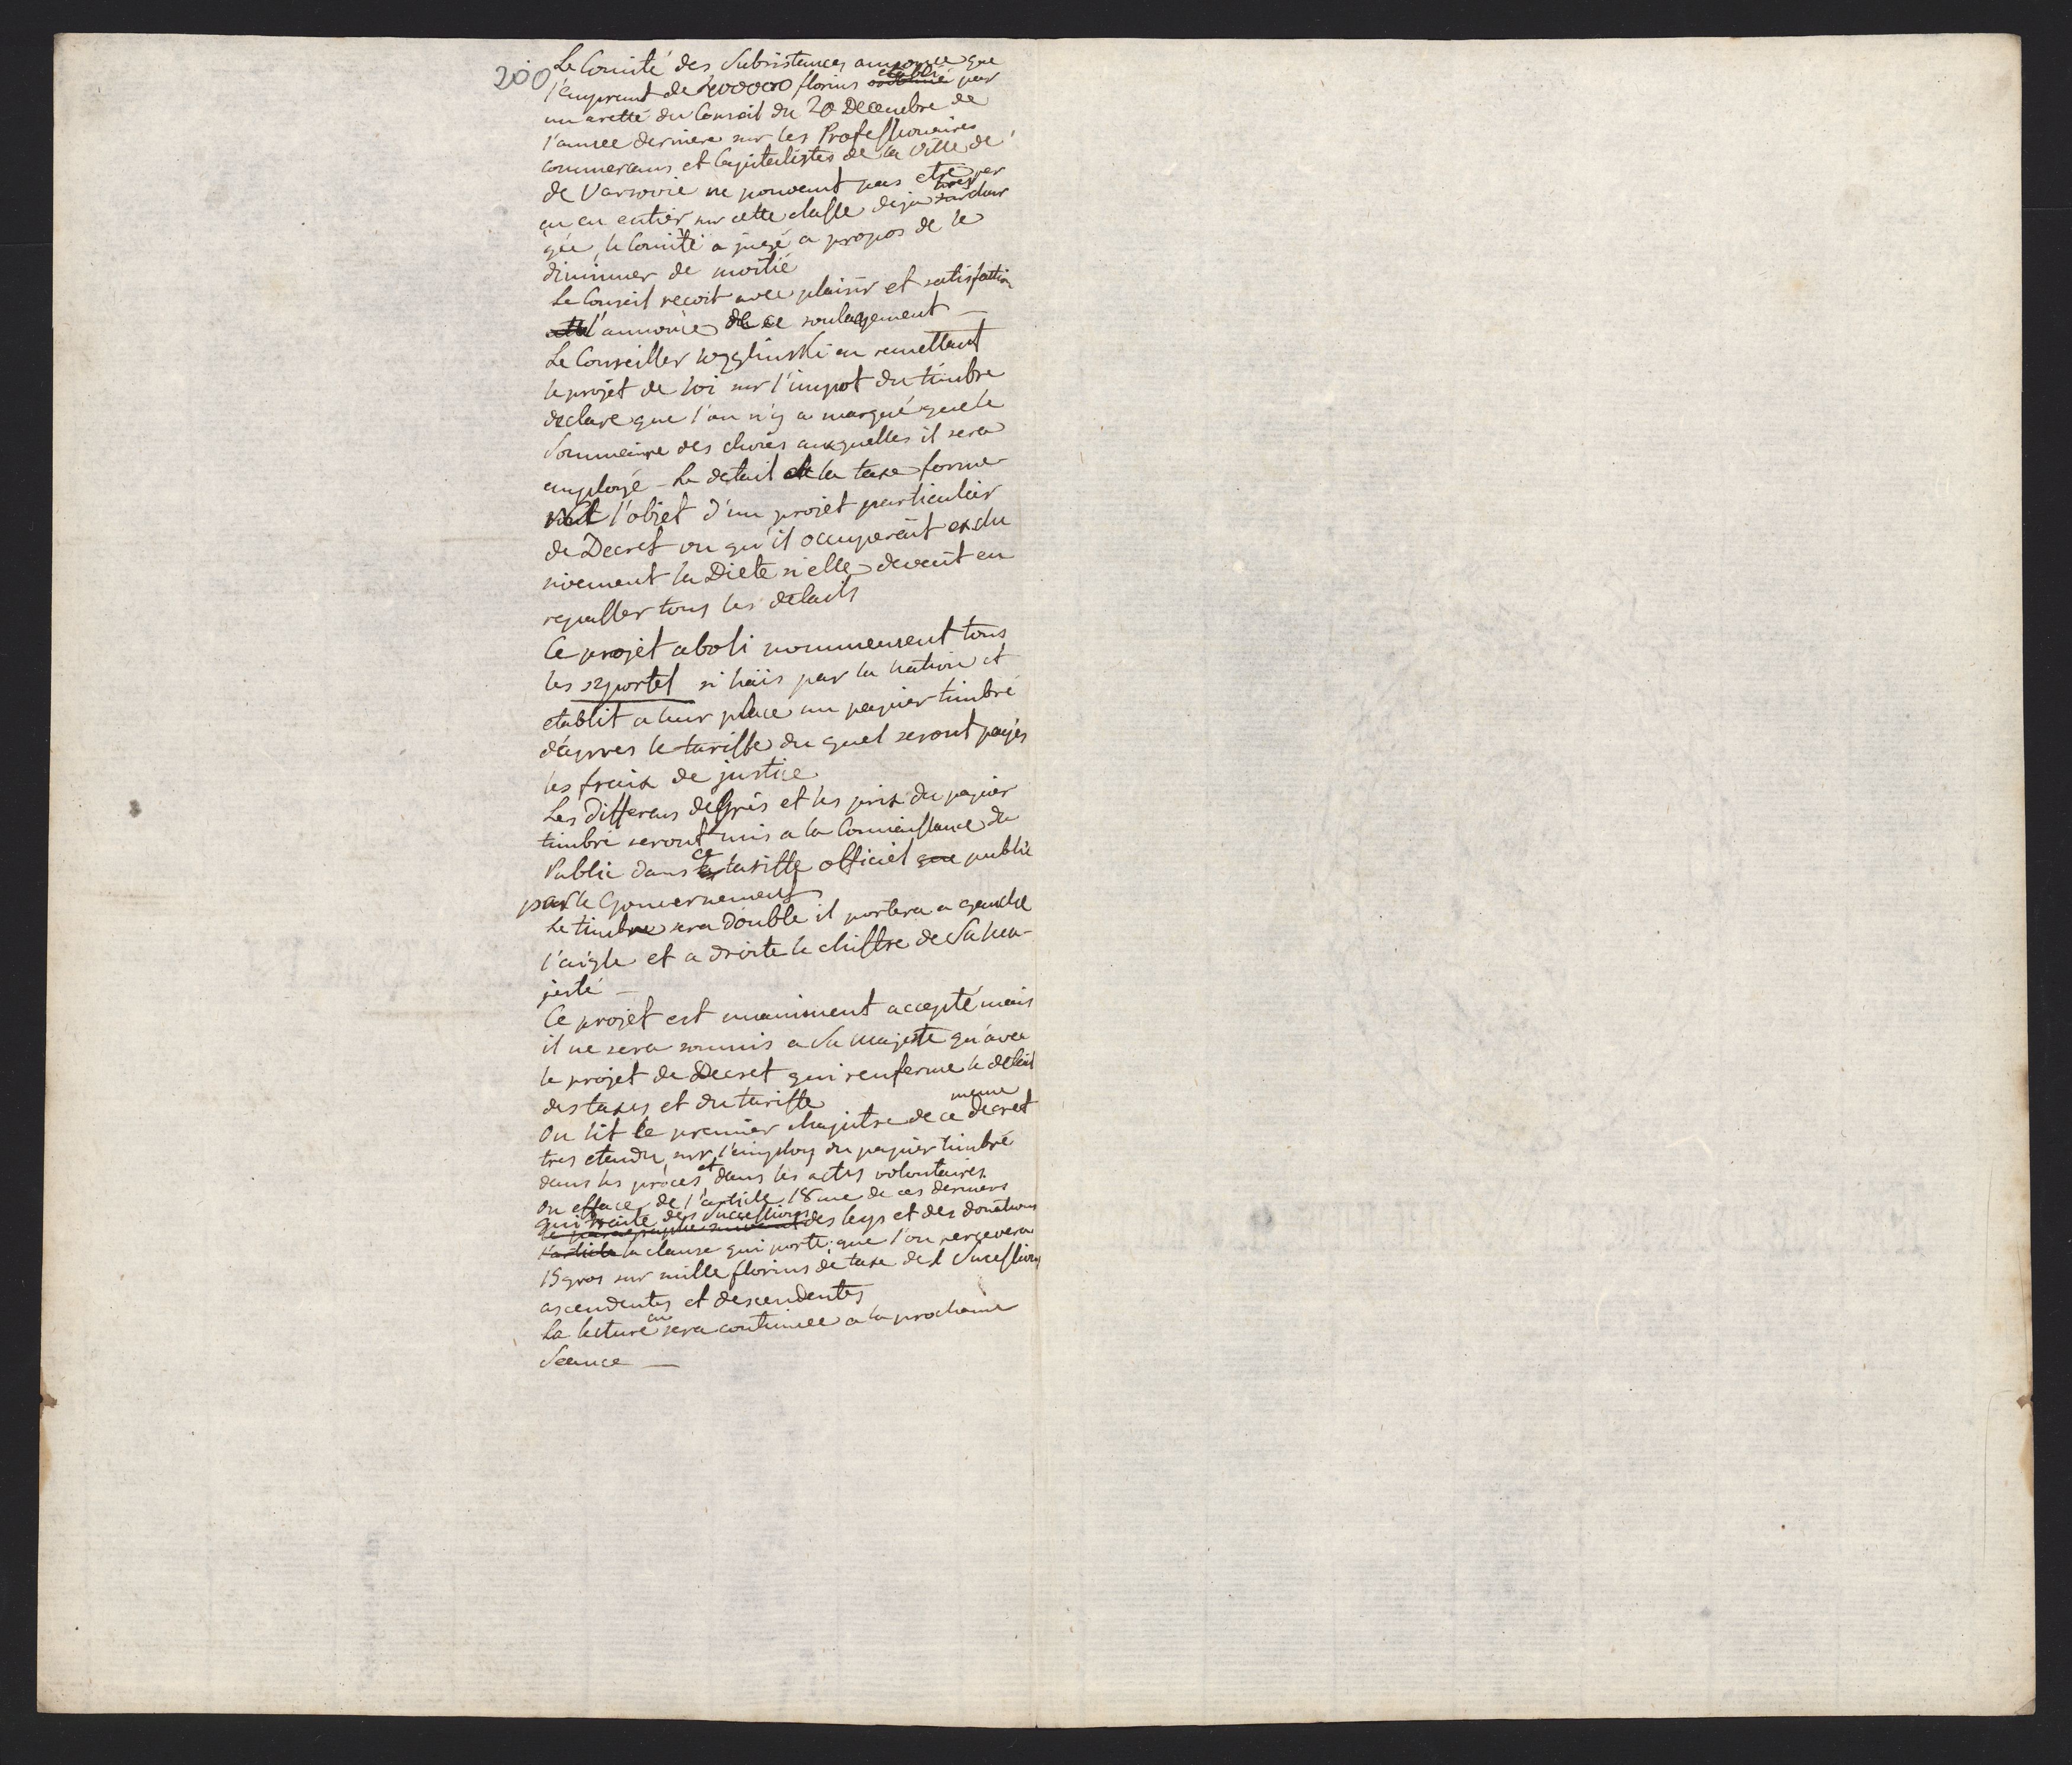 200
Le Comité des Subsistances annonce que
l'emprunt de 1000000 florins etabli par
un aretté du Conseil du 20 Decembre de
l'annee derniere sur les Professionaires
commercans et Capitalistes de la Ville de
de Varsovie ne pouvant pas etre per
çu en entier sur cette classe deja tres char
gée, le Comité a jugé a propos de le
diminuer de moitié
Le Conseil recoit avec plaisir et satisfaction
l'annonce de ce soulagement —
Le Conseiller Węgliński en remettant
le projet de loi sur l'impot du timbre
declare que l'on n'y a marqué que le
Sommaire des choses auxquelles il sera
employé - Le detail de la taxe forme-
l'objet d'un projet particulier
de Decret vu qu'il occuperait exclu
sivement la Diete si elle devait en
repasser tous les details
Ce projet aboli nommement tous
les szportel si haïs par la nation et
etablit a leur place un papier timbré
d'apres le tariffe du quel seront payés
les fraix de justice
Les differens degrés et les prix du papier
timbré seront mis a la Connaissance du
Public dans ce tariffe officiel que publie
par le Gouvernement
Le timbre sera double il portera a gauche
l'aigle et a droite le chiffre de Sa Ma-
jesté —
Ce projet est unaniment accepté mais
il ne sera soumis a Sa Majesté qu'avec
le projet de Decret qui renferme le detail
des taxes et du tariffe
On lit le premier chapitre de ce meme decret
tres etendu sur l'employ du papier timbré
dans les procès et dans les actes volontaires
On efface de l'article 18me de ces derniers
qui traite des Successions des legs et des donations
l'article la clause qui porte que l'on percevera
15 gros sur mille florins de taxe des Successions
ascendentes et descendentes
La lecture en sera continuée a la prochaine
Seance —